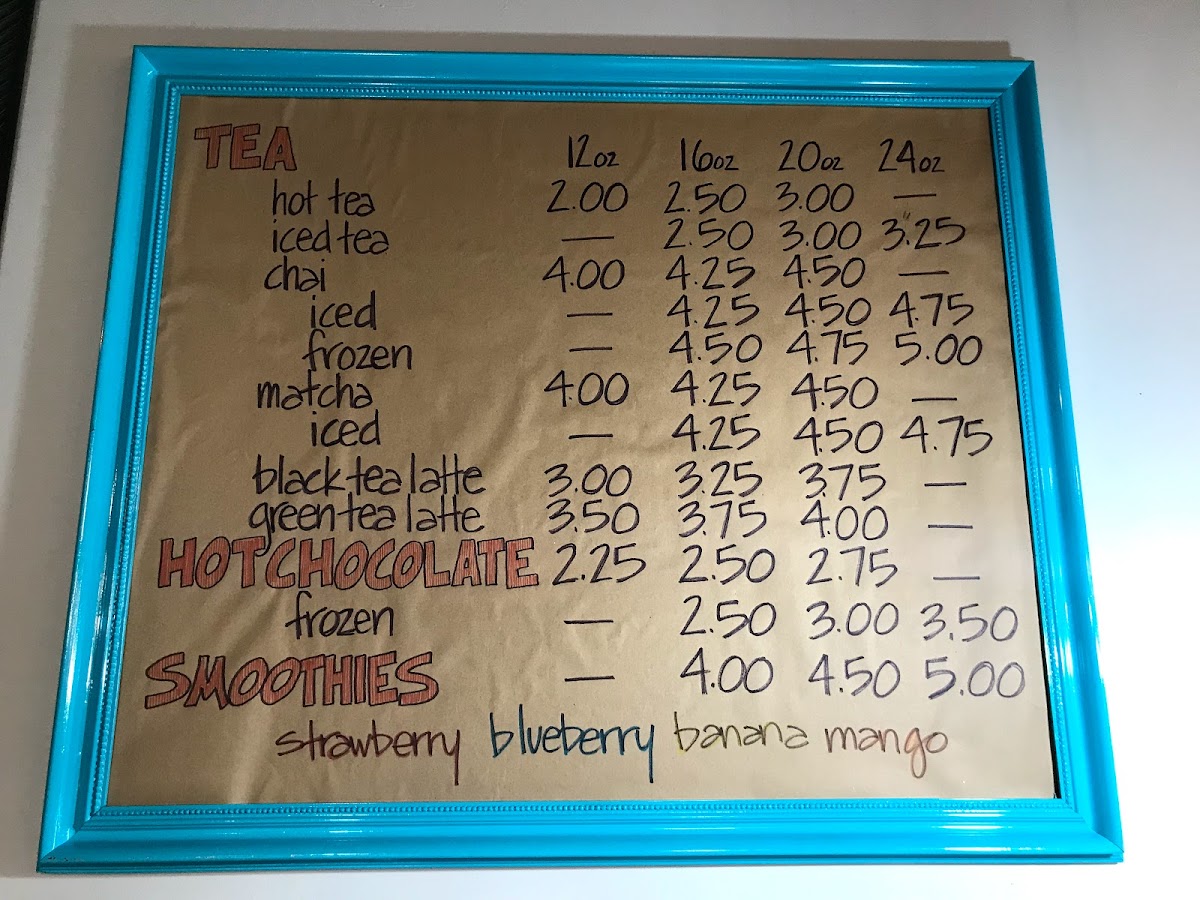 TEA 12oz 16oz 20oz 24oz
hot tea 2.00 2.50 3.00 —
iced tea — 2.50 3.00 3.25
chai 4.00 4.25 4.50 —
iced — 4.25 4.50 4.75
frozen — 4.50 4.75 5.00
matcha 4.00 4.25 4.50 —
iced — 4.25 4.50 4.75
black tea latte 3.00 3.25 3.75 —
green tea latte 3.50 3.75 4.00 —
HOT CHOCOLATE 2.25 2.50 2.75 —
frozen — 2.50 3.00 3.50
SMOOTHIES — 4.00 4.50 5.00
strawberry blueberry banana mango